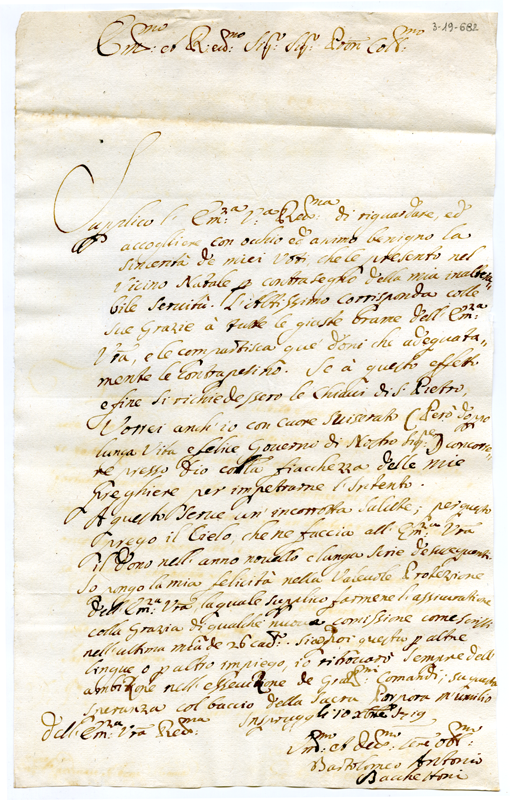 3-19-682
Em.mo et Rev.mo Sig.r Sig.r Pron Col.mo
Supplico l'Em.za V.a Rev.ma di riguardare, ed
accogliere con occhio ed animo benigno la
sincerità de miei Voti che le presento nel
vicino Natale p contrasegno della mia inaltera,,
bile servitù. L'Altissimo corrisponda colle
sue Grazie à tutte le giuste brame dell'Em.za
Vrã, e le compartisca que' doni che adequata,,
mente le contrapesino. Se à questo effetto
e fine si richiedessero le Chiavi di S. Pietro,
Vorrei anch'io con cuore sviscerato (Però dopo
lunga Vita e felice Governo di Nostro Sig.re) concorre,,
re presso Dio colla fiacchezza delle mie
Preghiere per impetrarne l'intento.
A questo serve un'incorrotta salute; per questo
prego il Cielo che ne faccia all'Em.za Vrã
il dono nell'anno novello e lunga serie de susseguenti
Io pongo la mia felicità nella Valevole Protezione
dell'Em.za Vrã la quale supplico farmene l'assicurazione
colla Grazia di qualche nuova comissione come scrissi
nell'ultima mia de 26 cad.o sia poi questo p altre
lingue o p altro impiego, io ritrovarò sempre dell'
ambizione nell'essecuzione de Comandi; su questa
speranza col bacio della Sacra Porpora m'umilio
dell'Em.za Vrã Rev.ma Inspruggh li 10 xbre 1719
Bartolomeo Antonio
Bacchettoni